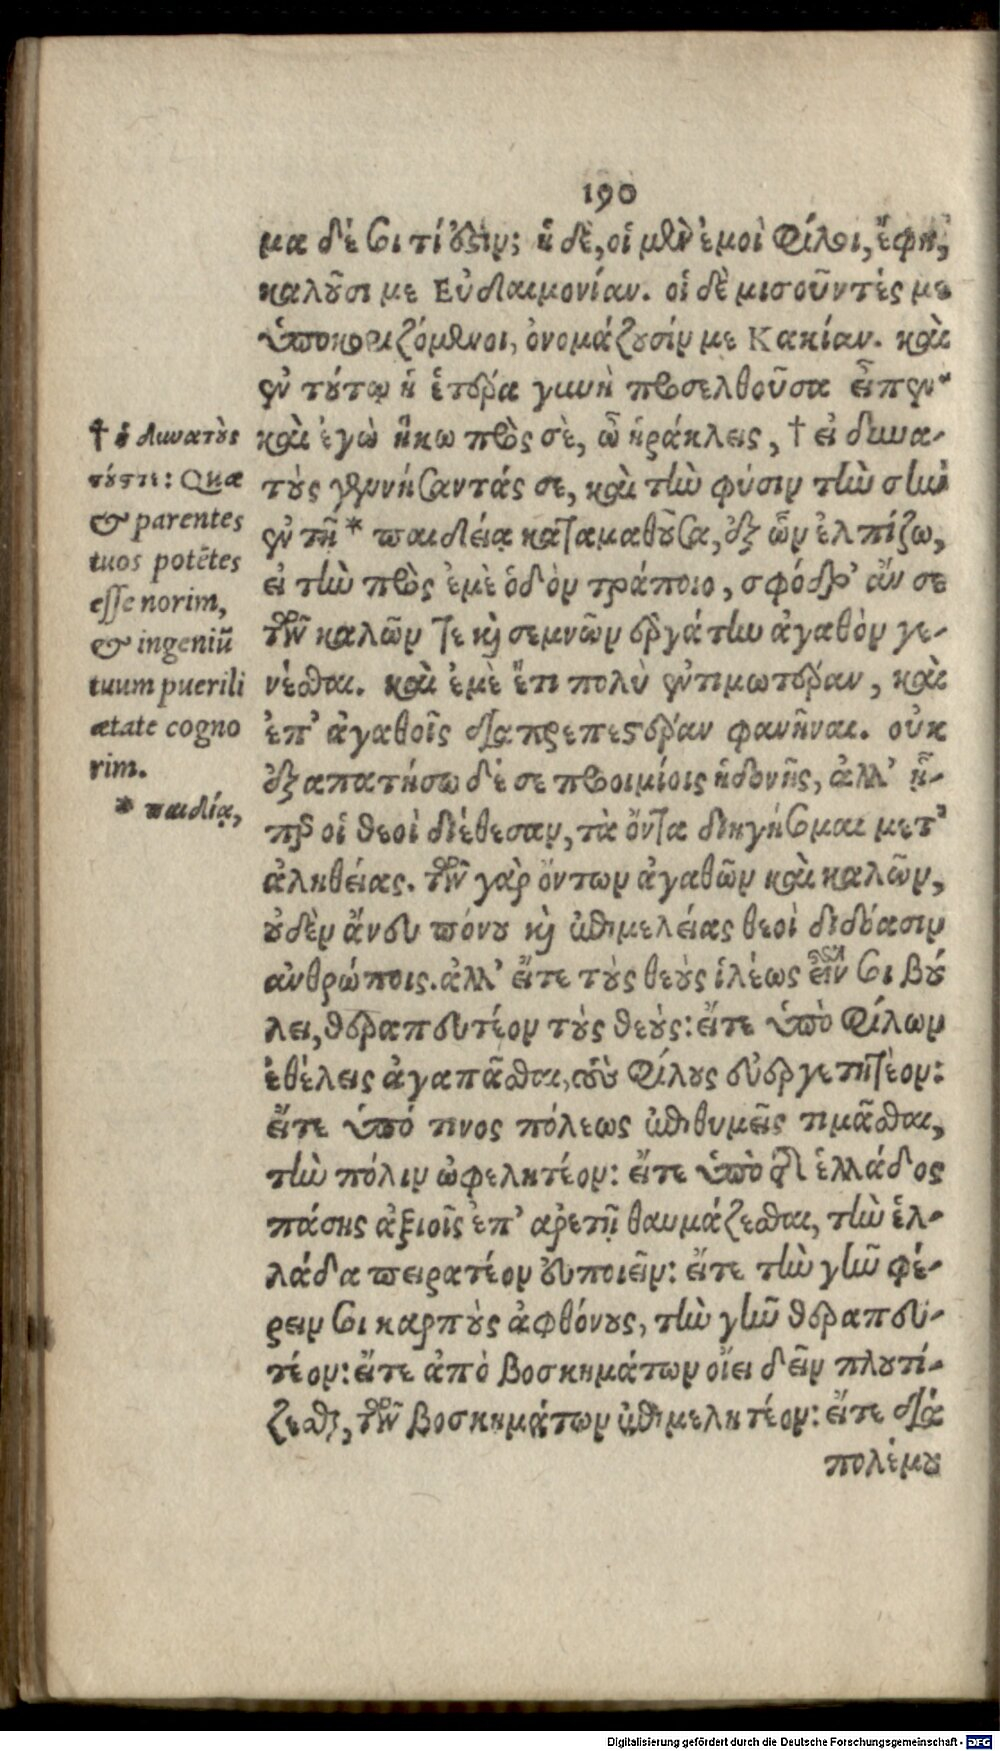 190
μα δέ σοι τί ἐστιν; ἡ δὲ, οἱ μὲν ἐμοὶ φίλοι, ἔφη,
καλοῦσι με Εὐδαιμονίαν. οἱ δὲ μισοῦντές με
ὑποκοριζόμενοι, ὀνομάζουσίν με Κακίαν. καὶ
ἐν τούτῳ ἡ ἑτέρα γυνὴ προσελθοῦσα εἶπεν·
καὶ ἐγὼ ἥκω πρὸς σὲ, ὦ ἡράκλεις, † εἰ δυνα-
τοὺς γεννήσαντάς σε, καὶ τὴν φύσιν τὴν σὴν
ἐν τῇ * παιδείᾳ καταμαθοῦσα, ἐξ ὧν ἐλπίζω,
εἰ τὴν πρὸς ἐμὲ ὁδὸν τράποιο, σφόδρ' ἄν σε
τῶν καλῶν τε καὶ σεμνῶν ἐργάτην ἀγαθὸν γε-
νέσθαι. καὶ ἐμὲ ἔτι πολὺ ἐντιμωτέραν, καὶ
ἐπ' ἀγαθοῖς διαπρεπεστέραν φανῆναι. οὐκ
ἐξαπατήσω δέ σε προοιμίοις ἡδονῆς, ἀλλ' ᾗ-
περ οἱ θεοὶ διέθεσαν, τὰ ὄντα διηγήσομαι μετ'
ἀληθείας. τῶν γὰρ ὄντων ἀγαθῶν καὶ καλῶν,
οὐδὲν ἄνευ πόνου καὶ ἐπιμελείας θεοὶ διδόασιν
ἀνθρώποις. ἀλλ' εἴτε τοὺς θεοὺς ἱλέως εἶναι σοι βού
λει, θεραπευτέον τοὺς θεούς: εἴτε ὑπὸ φίλων
ἐθέλεις ἀγαπᾶσθαι, τοὺς φίλους εὐεργετητέον:
εἴτε ὑπό τινος πόλεως ἐπιθυμεῖς τιμᾶσθαι,
τὴν πόλιν ὠφελητέον: εἴτε ὑπὸ τῆς ἑλλάδος
πάσης ἀξιοῖς ἐπ' ἀρετῇ θαυμάζεσθαι, τὴν ἑλ-
λάδα πειρατέον εὖ ποιεῖν: εἴτε τὴν γῆν φέ-
ρειν σοι καρποὺς ἀφθόνους, τὴν γῆν θεραπευ-
τέον: εἴτε ἀπὸ βοσκημάτων οἴει δεῖν πλουτί-
ζεσθαι, τῶν βοσκημάτων ἐπιμελητέον: εἴτε διὰ
πολέμου
† ὁ δυνατοὺς
τούστε: Quæ
& parentes
tuos potẽtes
esse norim,
& ingeniũ
tuum puerili
ætate cogno
rim.
* παιδίᾳ,
Digitalisierung gefördert durch die Deutsche Forschungsgemeinschaft - DFG